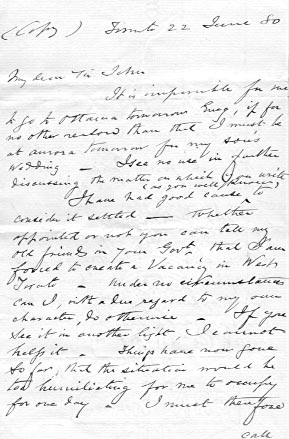 (Copy) Toronto 22 June 80
My dear Sir John
It is impossible for me
to go to Ottawa tomorrow Eveg, if for
no other reason than that I must be
at aurora tomorrow for my son's
Wedding — I see no use in further
discussing the matter on which you write
I have had good cause (as you well know) to
consider it settled — Whether
appointed or not you can tell my
old friends in your Govt. that I am
forced to create a Vacancy in West
Toronto — Under no circumstances
can I, with a due regard to my own
character, do otherwise — If you
see it in another light, I cannot
help it — Things have now gone
so far, that the situation would be
too humiliating for me to occupy
for one day — I must therefore
call